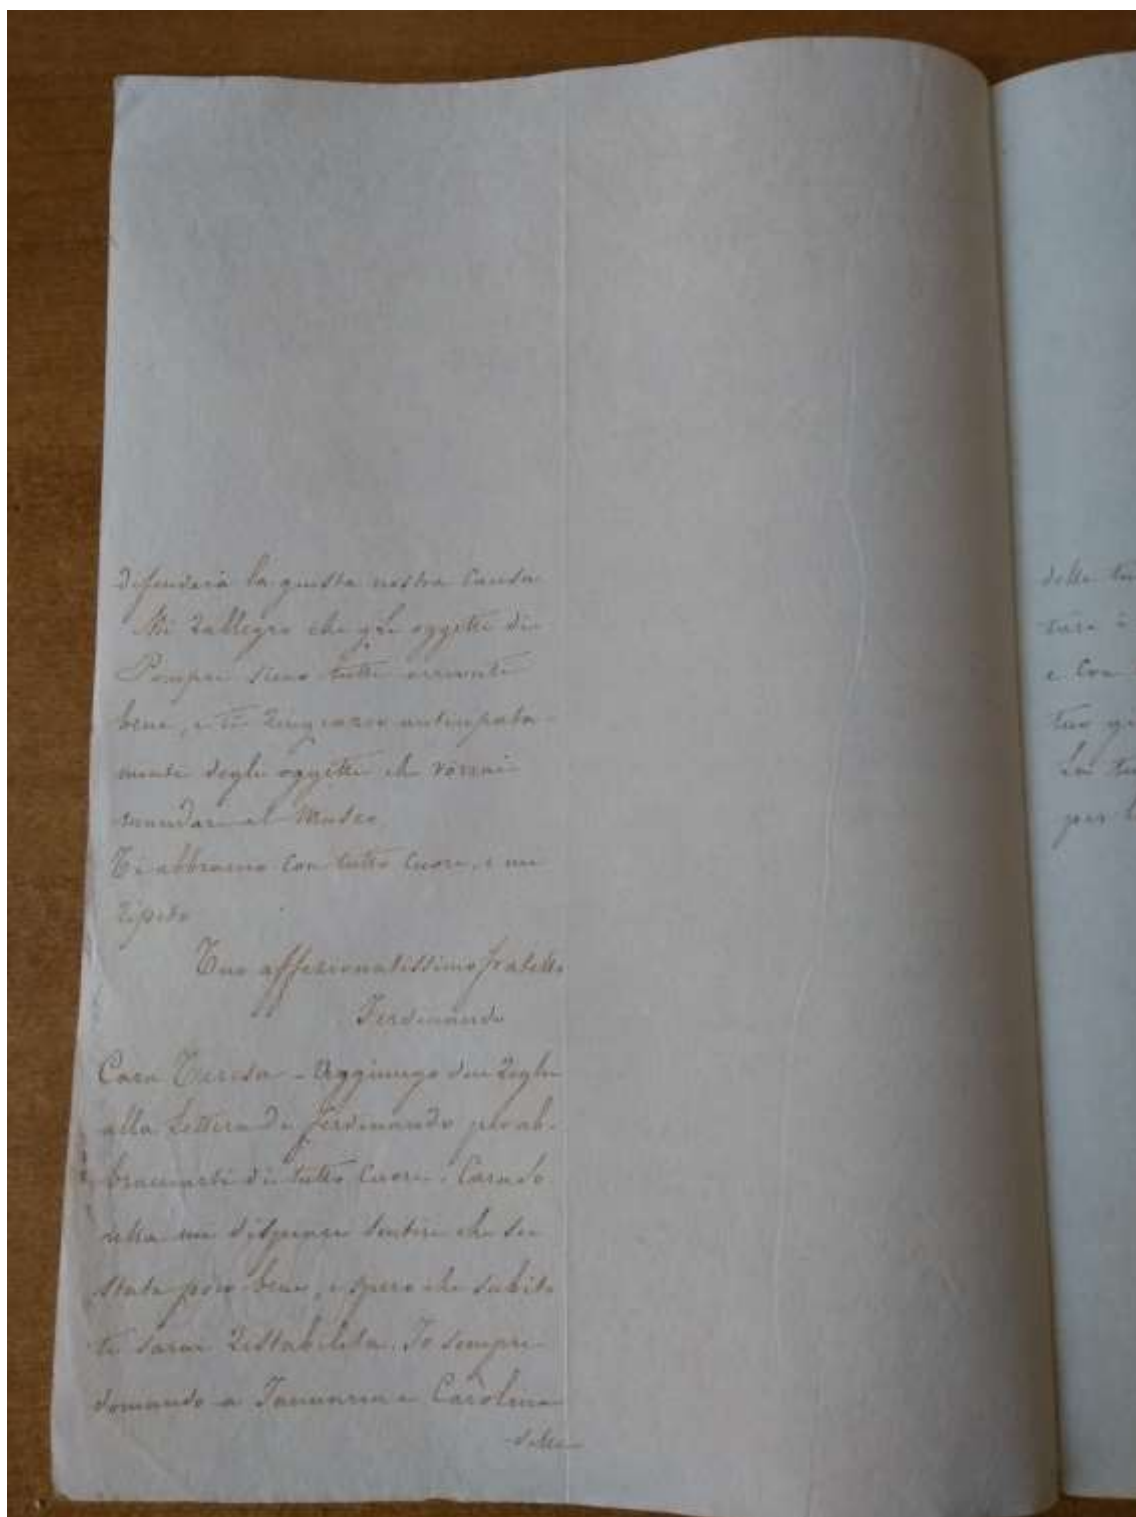 difenderà la giusta nostra causa
Mi rallegro che gli oggetti di
Pompei sieno tutti arrivati
bene, e ti ringrazio anticipata-
mente degli oggetti che vorrai
mandare al Museo.
Ti abbraccio con tutto cuore, e mi
ripeto
Tuo affezionatissimo fratello
Ferdinando
Cara Teresa - Aggiungo due righe
alla lettera di Ferdinando per ab-
bracciarti di tutto cuore. Cara so
rella mi dispiace sentire che sei
stata poco bene, e spero che subito
ti sarai ristabilita. Io sempre
domando a Januaria e Carolina
delle
delle tu
tua
e con
tuo
per l